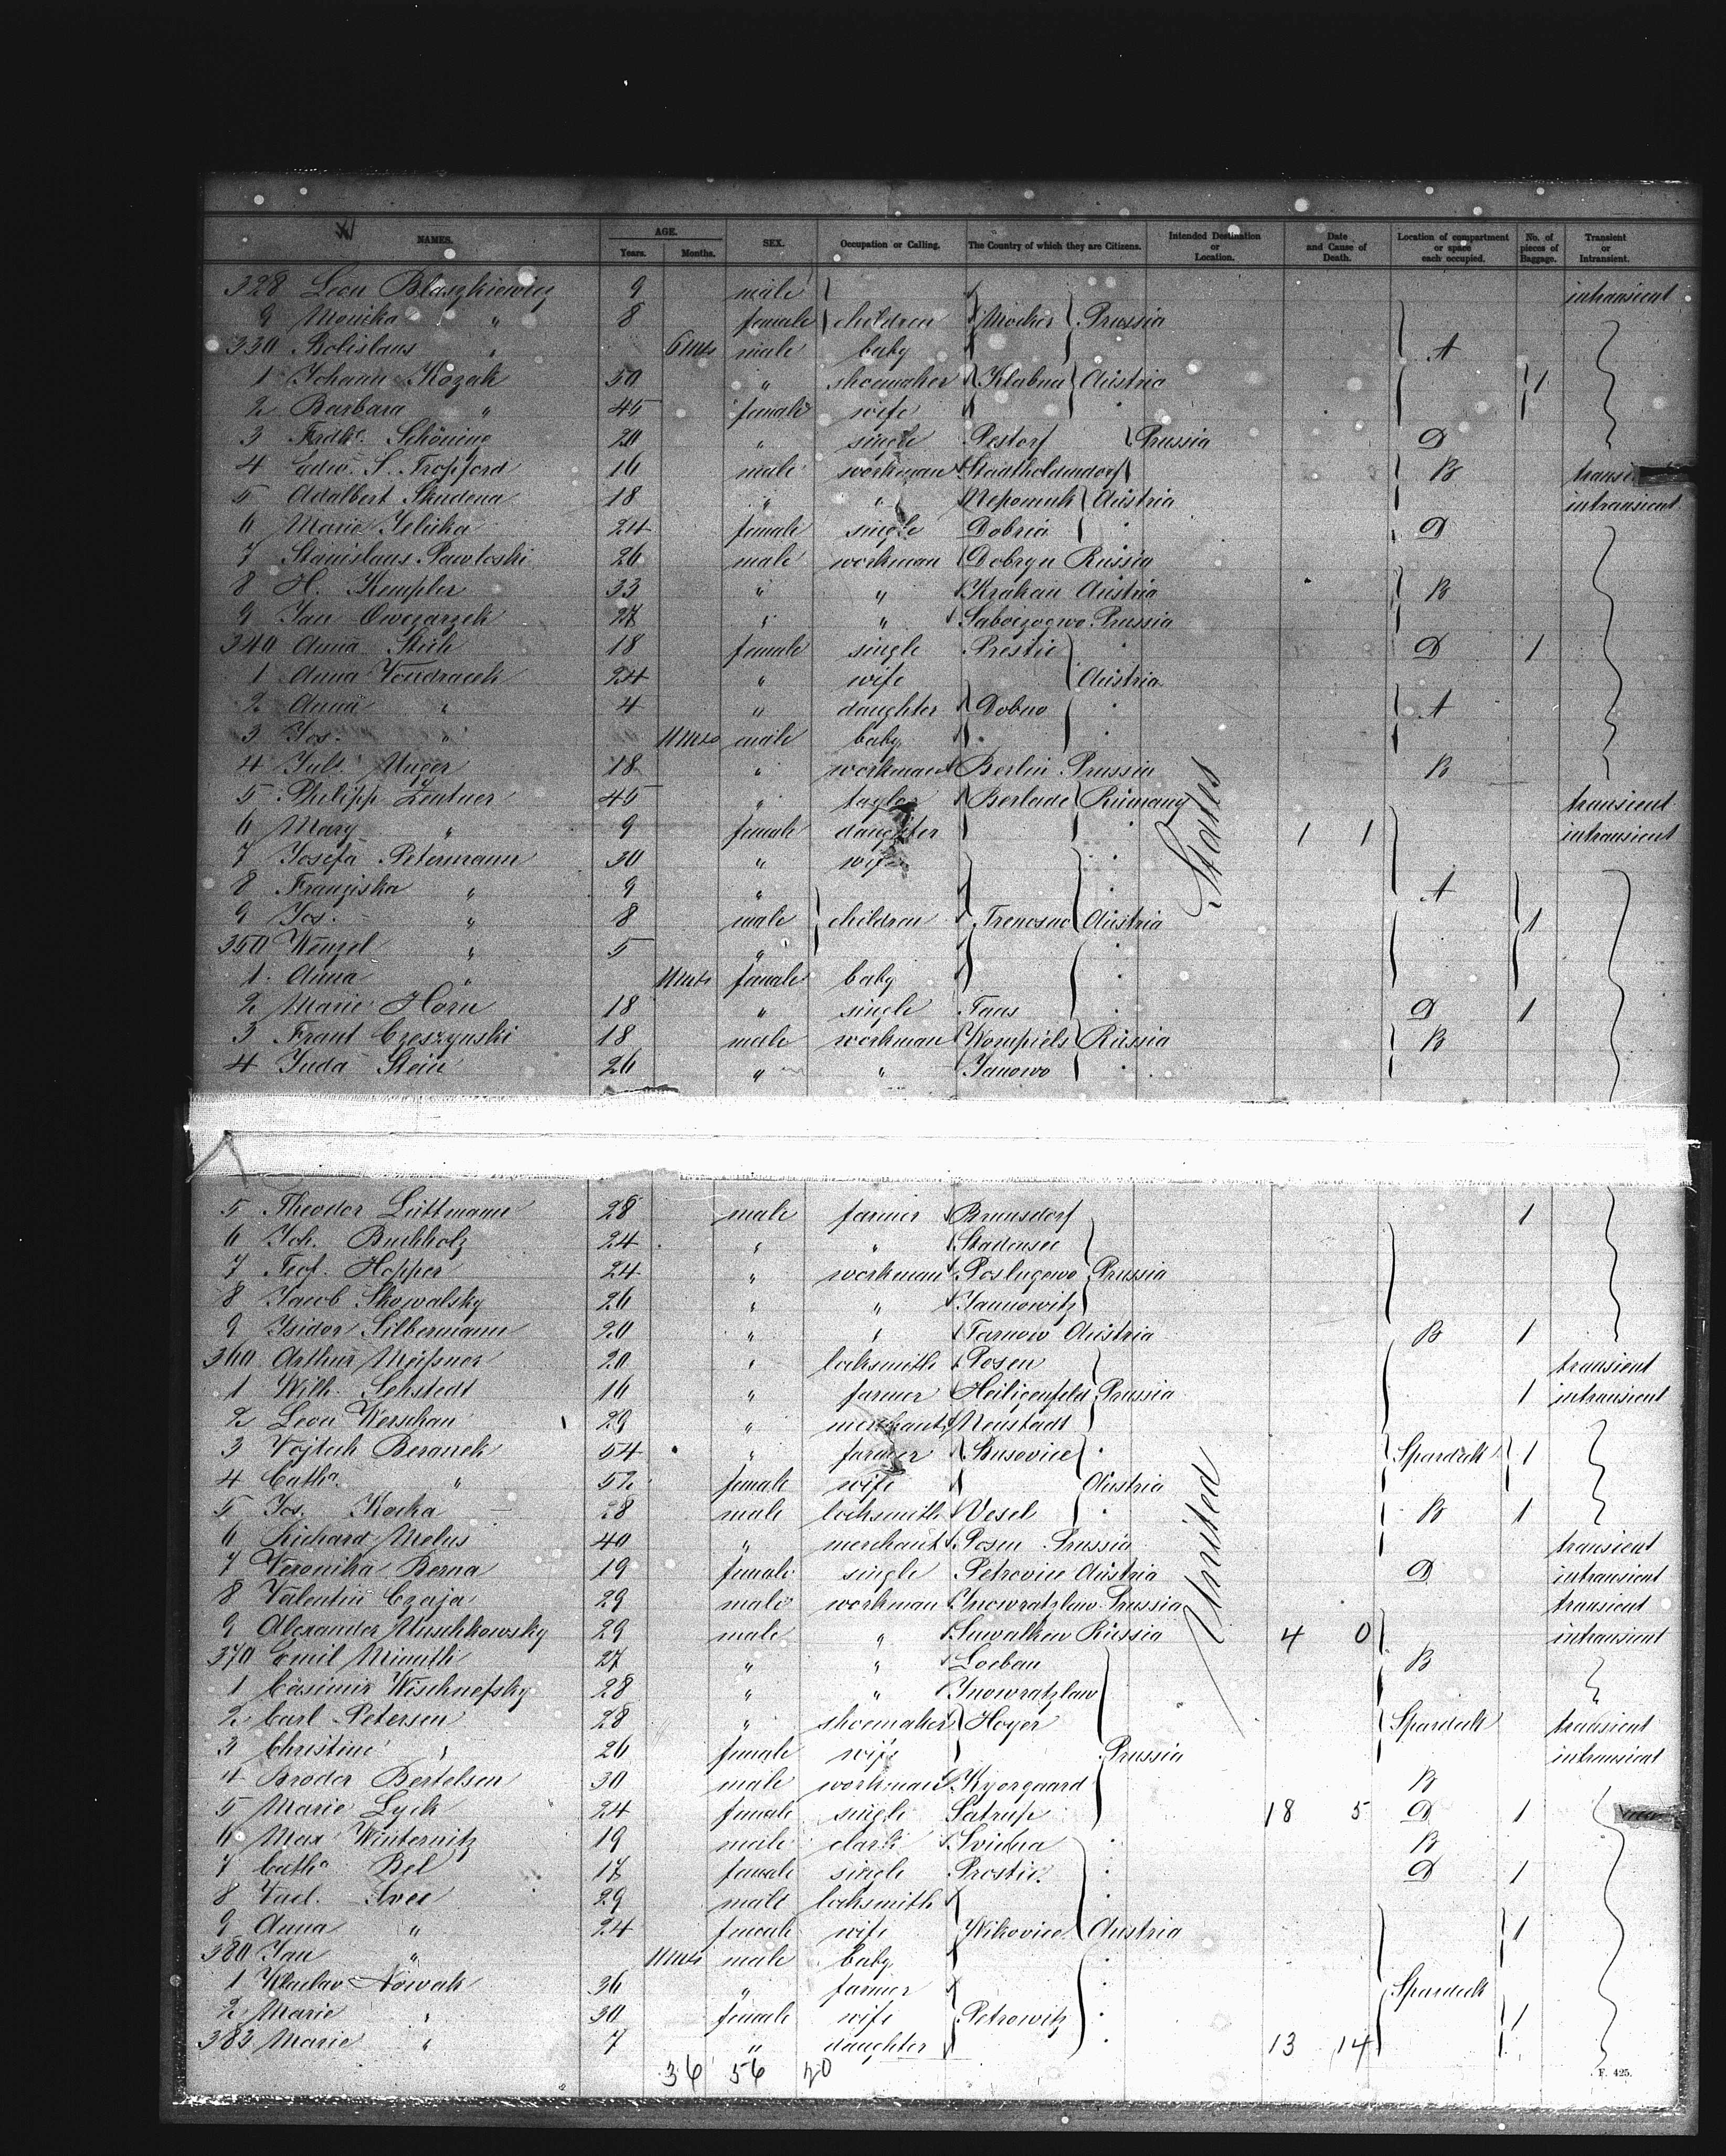 NAMES. AGE. Years. Months. SEX. Occupation or Calling. The Country of which they are Citizens. Intended Destination or Location. Date and Cause of Death. Location of compartment or space each occupied. No. of pieces of Baggage. Transient or Intransient.
328 Leon Blaszkiewicz 9 male intransient
9 Monika " 8 female children Mocker Prussia
330 Bolislaus " 6 Mts male baby A
1 Johann Kozak 50 " shoemaker Klabna Austria 1
2 Barbara " 45 female wife
3 Frdke. Schöning 20 " single Pestorf Prussia D
4 Edw. S. Tropford 16 male workman Stadtholdendorf B
5 Adalbert Skudena 18 " " Nepomuk Austria intransient
6 Marie Jelinka 24 female single Dobria D
7 Stanislaus Pawloski 26 male workman Dobryn Russia
8 H. Kempler 33 " " Krakau Austria B
9 Jan Owczarzek 27 " " Prussia
340 Anna Stich 18 female single Prestic D 1
1 Anna Vondracek 24 " wife Austria
2 Anna " 4 " daughter Dobno A
3 Jos. " 11 Mts male baby
4 Jul. Unger 18 " workman Berlin Prussia B
5 Philipp Zentner 45 " taylor Berlade Rumany transient
6 Mary " 9 female daughter 1 1 intransient
7 Josefa Petermann 30 " wife
8 Franziska " 9 " A
9 Jos. " 8 male children Trenosno Austria 1
350 Wenzel " 5 "
1 Anna " 11 Mts female baby
2 Marie Horn 18 " single Taus D 1
3 Frant Czeszynski 18 male workman Kompiels Russia B
4 Juda Stein 26 " " Janowo
States
5 Theodor Lüttmann 28 male farmer Brunsdorf 1
6 Joh. Buchholz 24 " " Stadensee
7 Teof. Hopper 24 " workman Poslugowo Prussia
8 Jacob Skowalsky 26 " " Jannowitz
9 Isidor Silbermann 20 " " Tarnow Austria B 1
360 Arthur Meißner 20 " locksmith Posen transient
1 Wilh. Sehstedt 16 " farmer Heiligenfeld Prussia 1 intransient
2 Leon Werschan 29 " merchant Neustadt
3 Vojtech Beranek 54 " farmer Rusovice Spardeck 1
4 Catha. " 52 female wife Austria
5 Jos. Kocka 28 male locksmith Vesel B 1
6 Richard Melus 40 " merchant Posen Prussia transient
7 Veronika Berna 19 female single Petrovice Austria D intransient
8 Valentin Czaja 29 male workman Inowratzlaw Prussia transient
9 Alexander Muschkowsky 29 male " Suwalken Russia 4 0 intransient
370 Emil Minuth 27 " " Loebau B
1 Casimir Wischnefsky 28 " " Inowratzlaw
2 Carl Petersen 28 " shoemaker Hoyer Spardeck transient
3 Christine " 26 female wife Prussia intransient
4 Broder Bertelsen 30 male workman Kjorgaard B
5 Marie Lyck 24 female single Satrup 18 5 D 1
6 Max Winternitz 19 male clark Svieha B
7 Catha. Bel 17 female single Prestic D 1
8 29 male locksmith
9 Anna " 24 female wife Wikovice Austria 1
380 Jan " 11 Mts male baby
1 Waclav Nowak 36 " farmer Spardeck
2 Marie " 30 female wife Petrowitz 1
383 Marie " 7 " daughter 13 14
United
36 56 20
F. 425.